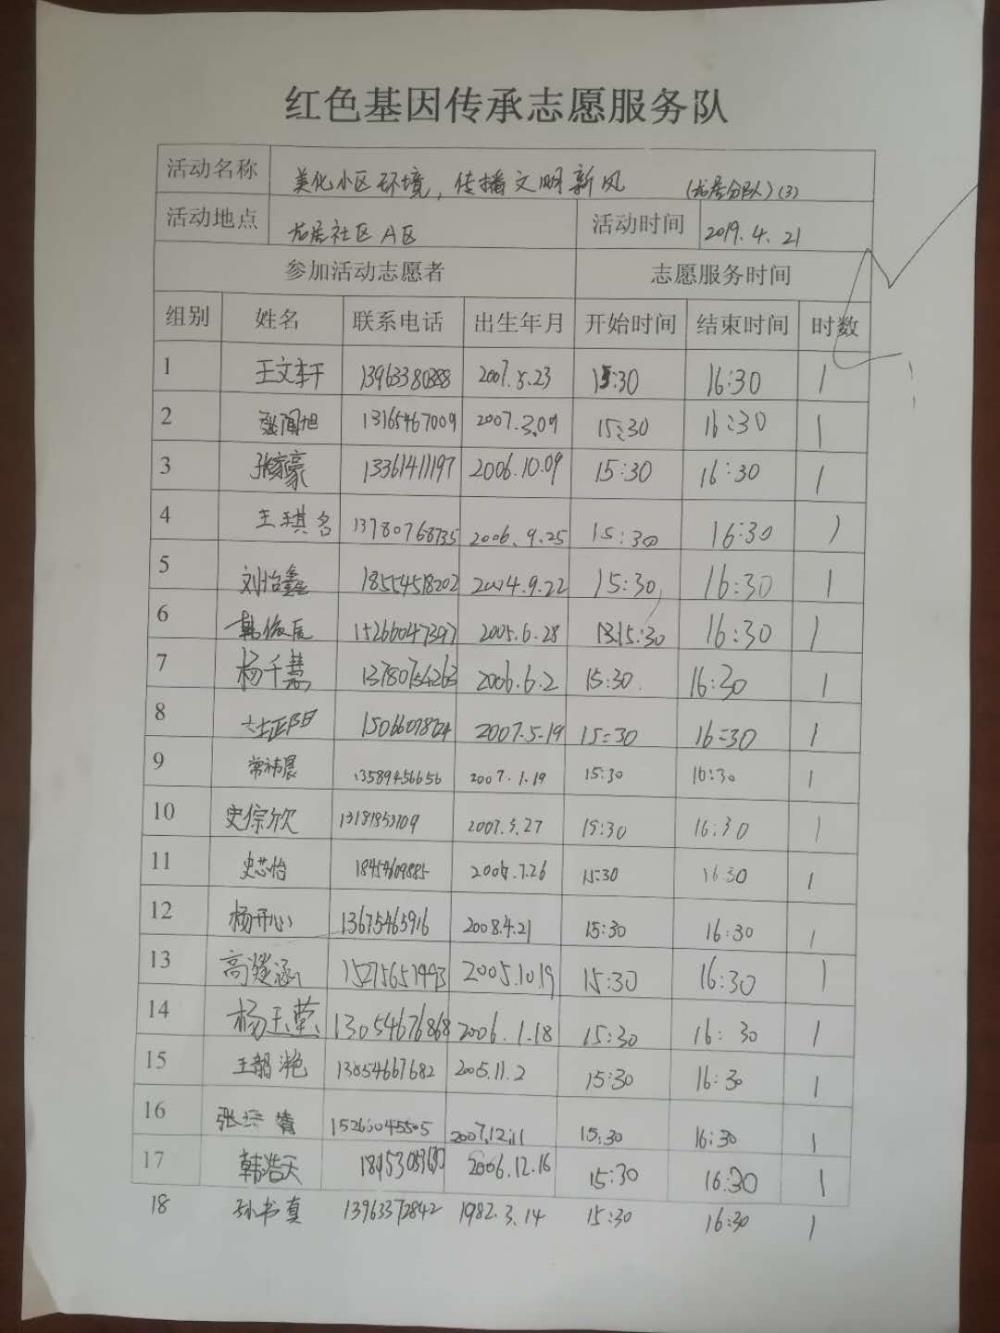 红色基因传承志愿服务队
活动名称 美化小区环境，传播文明新风 (龙居分队)(3)
活动地点 龙居社区A区 活动时间 2019.4.21
参加活动志愿者 志愿服务时间
组别 姓名 联系电话 出生年月 开始时间 结束时间 时数
1 王文轩 13963380388 2007.8.23 15:30 16:30 1
2 13165467009 2007.3.09 15:30 16:30 1
3 张家豪 13361411197 2006.10.09 15:30 16:30 1
4 王琪名 13780768735 2006.9.25 15:30 16:30 1
5 刘怡鑫 18554518202 2004.9.22 15:30 16:30 1
6 韩俊辰 15266047397 2005.6.28 15:30 16:30 1
7 杨千慧 13780754263 2006.6.2 15:30 16:30 1
8 2007.5.19 15:30 16:30 1
9 常祎晨 13589456656 2007.1.19 15:30 16:30 1
10 史倧欣 13181853709 2007.3.27 15:30 16:30 1
11 史芯怡 18454609885 15:30 16:30 1
12 杨开心 13675465916 2008.4.21 15:30 16:30 1
13 高滢涵 15275651993 2005.10.19 15:30 16:30 1
14 杨玉莹 13054676868 2006.1.18 15:30 16:30 1
15 王韶滟 13854667682 2005.11.2 15:30 16:30 1
16 15266045505 2007.12.11 15:30 16:30 1
17 韩浩天 2006.12.16 15:30 16:30 1
18 孙书真 13963372842 1982.3.14 15:30 16:30 1